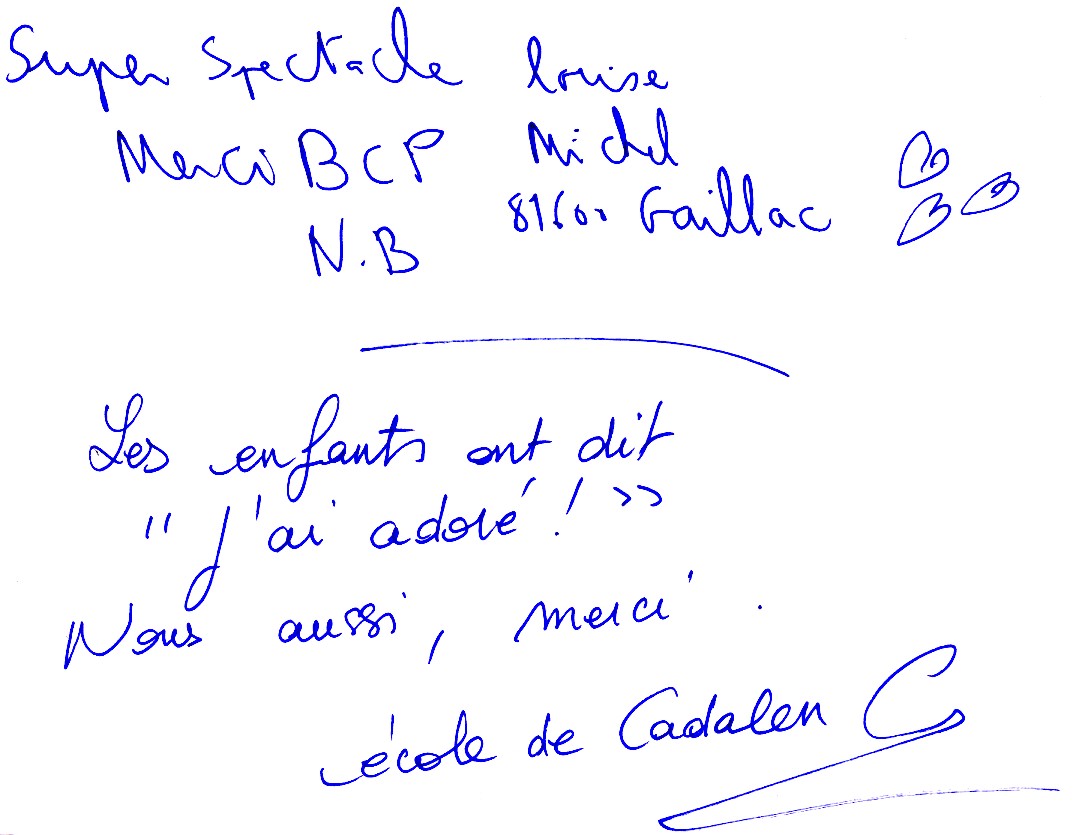 Super Spectacle Louise
Merci BCP Michel
N.B 81600 Gaillac
Les enfants ont dit
" J'ai adoré ! »
Nous aussi, merci .
école de Cadalen